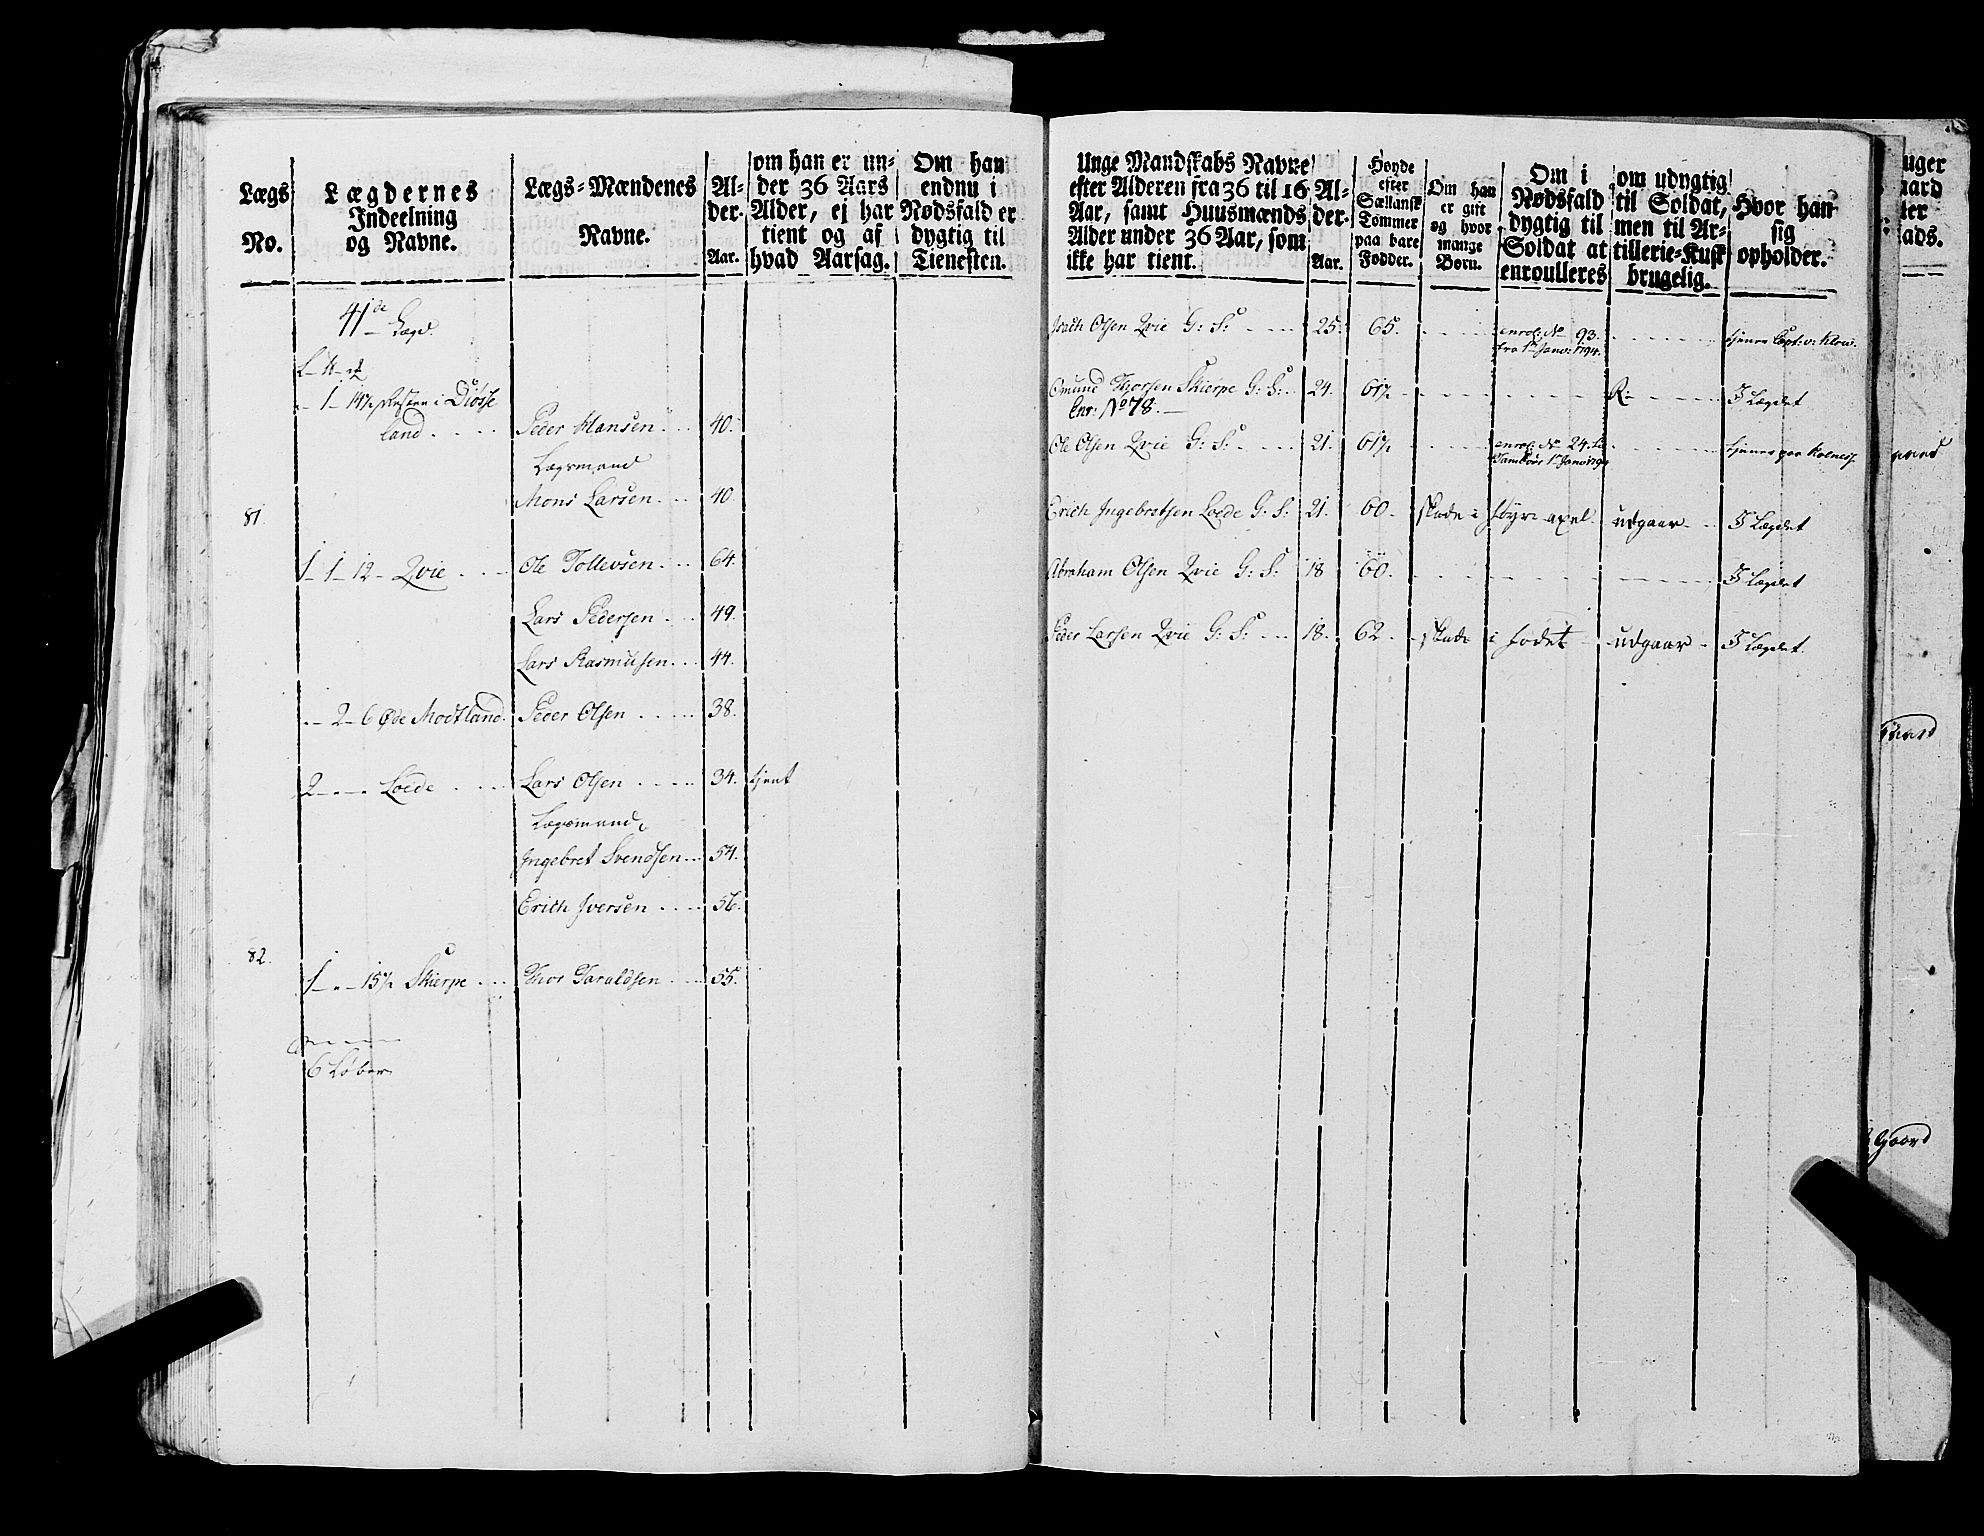 Lægs No.
Lægdernes Indeelning og Navne.
Lægs-Mændenes Navne.
Alder. Aar.
om han er under 36 Aars Alder, ej har tient og af hvad Aarsag.
Om han endnu i Nødsfald er dygtig til Tienesten.
41de Lægd.
1 - 14½ Resten i Diösse
land . . . . Peder Hansen . . . 40.
Lægsmand
Mons Larsen . . . 40.
81.
1 - 1 - 12 - Qvie . . . Ole Tollevsen . . . 64.
Lars Pedersen . . . 49.
Lars Rasmusen . . . 44.
. - 2 - 6 Øde Modland. Peder Olsen . . . . . 38.
2 - . - . Loede . . . . Lars Olsen . . . . . 34. tjent
Lægsmand
Ingebret Svendsen . . . 54.
Erich Iversen . . . . 56.
82.
1 - . - 15½ Skierpe . . . Thor Taraldsen . . . 55.
6 Løber
Unge Mandskabs Navne efter Alderen fra 36 til 16 Aar, samt Huusmænds Alder under 36 Aar, som ikke har tient.
Alder. Aar.
Høyde efter Sællansk Tommer paa bare Fødder.
Om han er gift og hvor mange Børn.
Om i Nødsfald dygtig til Soldat at enroulleres
om udygtig til Soldat, men til Artillerie-Kusk brugelig.
Hvor han sig opholder.
Olsen Qvie G: S: . . . . 25. 65. . . . . enrol: No 93. . . . . . tjener Capt: v:
fra 1te Janv: 1794.
Omund Thorsen Skierpe G: S: . . 24. 61½ . . . . . R . . . . . I Lægdet
Enr: No 78.
Ole Olsen Qvie G: S: . . . . 21. 61½ . . . . enrol: No 24. . . . . . tjener paa
Tambour 1te Janv 1794
Erich Ingebretsen Loede G: S: 21. 60. skade i høyre axel. udgaar . . I Lægdet
Abraham Olsen Qvie G: S: 18 60. . . . . . . . I Lægdet
Peder Larsen Qvie G: S: . . . 18. 62. skade i fodet udgaar . I Lægdet